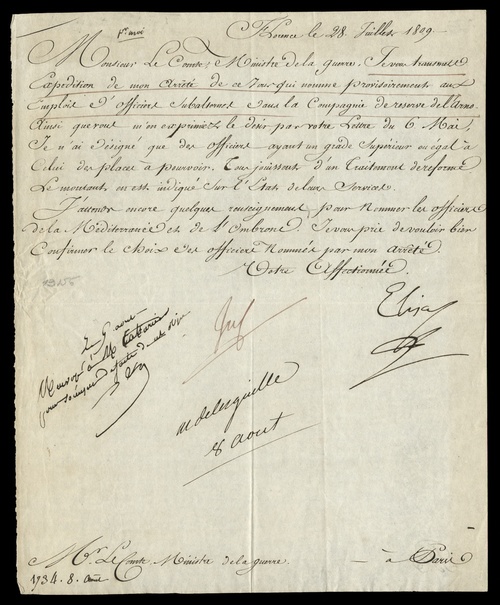 Florence le 28 Juillet 1809
Monsieur Le Comte, Ministre de la guerre. Je vous transmets
Expédition de mon Arrêté de ce Jour qui nomme provisoirement aux
Emplois d'officiers Subalternes dans la Compagnie de reserve de l'Arno
Ainsi que vous m'en exprimiez le désir par votre Lettre du 6 Mai,
Je n'ai désigné que des officiers ayant un grade Superieur ou égal à
Celui des places à pourvoir. Tous jouissent d'un Traitement de reforme
Le montant en est indiqué Sur l'Etat de leurs Services.
J'attens encore quelques renseignemens pour Nommer les officiers
de la Méditerranée et de l'Ombrone. Je vous prie de vouloir bien
Confirmer le choix des officiers Nommés par mon arrêté.
Votre Affectionnée.
Elisa
9 aout
Renvoyé à M
pour
8 aout
Mr. Le Comte Ministre de la guerre. — à Paris
1734. 8. Aout